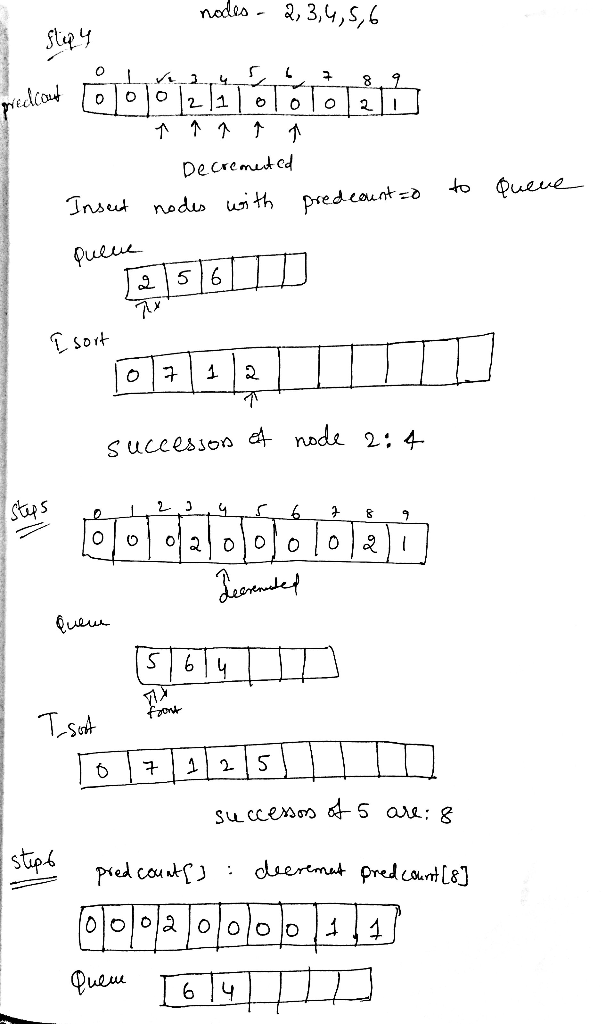 nodes - 2,3,4,5,6
Step 4
0 1 2 3 4 5 6 7 8 9
predcout 0 0 0 2 1 0 0 0 2 1
Decremented
Insert nodes with predcount=0 to Queue
Queue
2 5 6
T sort
0 7 1 2
successors of node 2: 4
Step 5
0 1 2 3 4 5 6 7 8 9
0 0 0 2 0 0 0 0 2 1
decremented
Queue
5 6 4
front
T-sort
0 7 1 2 5
successors of 5 are: 8
step 6
pred count[] : decrement pred count[8]
0 0 0 2 0 0 0 0 1 1
Queue 6 4